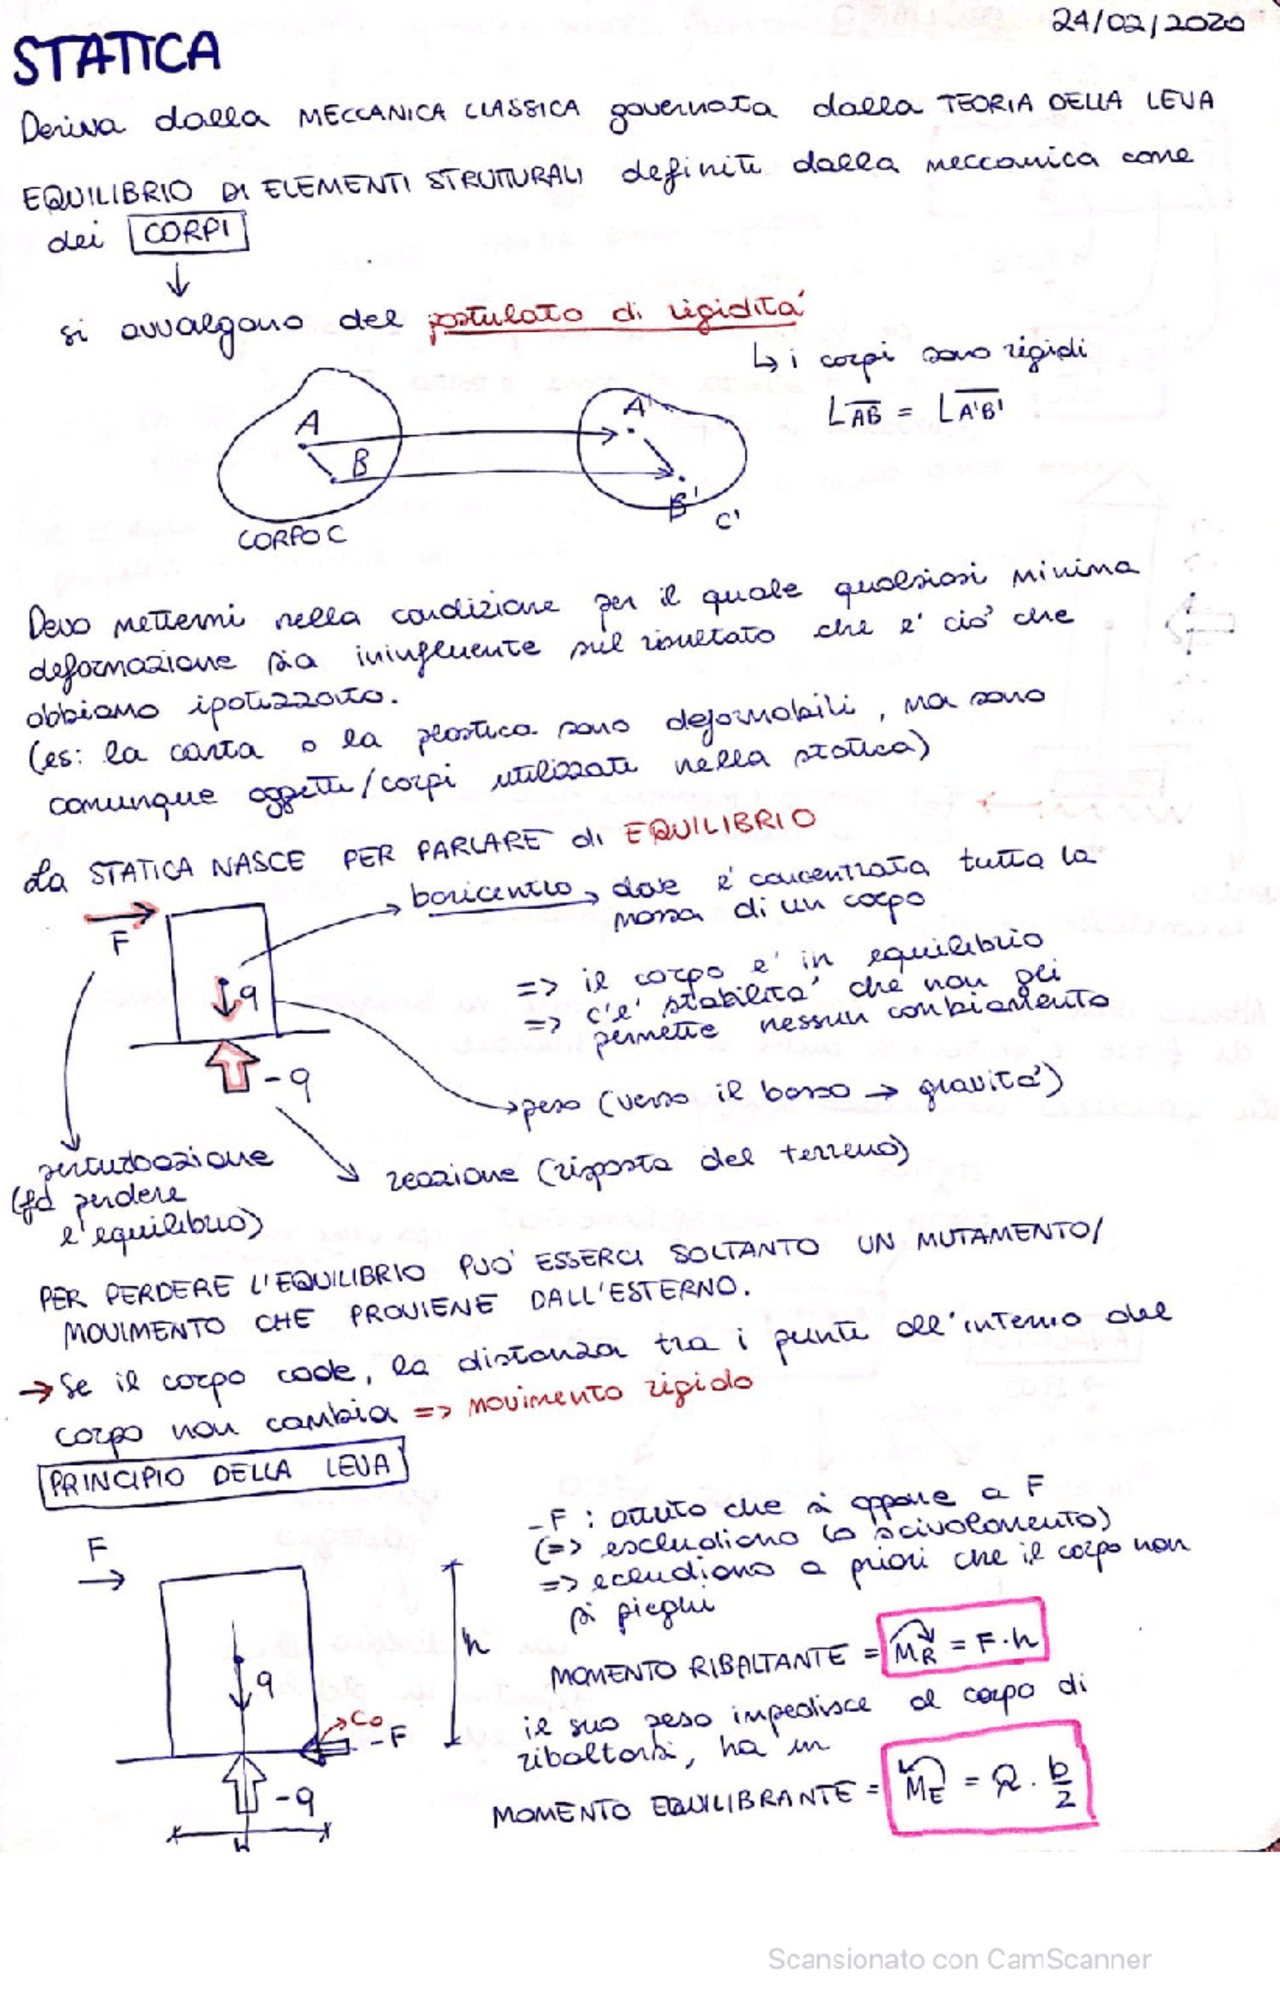 24/02/2020
STATICA
Deriva dalla MECCANICA CLASSICA governata dalla TEORIA DELLA LEVA
EQUILIBRIO DI ELEMENTI STRUTTURALI definiti dalla meccanica come
dei CORPI
↓
si avvalgono del postulato di rigidità
↳ i corpi sono rigidi
L AB = L A'B'
A
B
A'
B'
CORPO C
C'
Devo mettermi nella condizione per il quale qualsiasi minima
deformazione sia ininfluente sul risultato che e' ciò che
abbiamo ipotizzato.
(es: la carta o la plastica sono deformabili, ma sono
comunque oggetti/corpi utilizzati nella statica)
La STATICA NASCE PER PARLARE di EQUILIBRIO
baricentro → dove e' concentrata tutta la
massa di un corpo
F
q
=> il corpo e' in equilibrio
=> c'e' stabilita' che non gli
permette nessun cambiamento
-q
peso (verso il basso → gravita')
perturbazione
(fa perdere
l'equilibrio)
reazione (risposta del terreno)
PER PERDERE L'EQUILIBRIO PUO' ESSERCI SOLTANTO UN MUTAMENTO/
MOVIMENTO CHE PROVIENE DALL'ESTERNO.
→ Se il corpo cade, la distanza tra i punti all'interno del
corpo non cambia => movimento rigido
PRINCIPIO DELLA LEVA
F
-F : attrito che si oppone a F
(=> escludiamo lo scivolamento)
=> ecludiamo a priori che il corpo non
si pieghi
h
MOMENTO RIBALTANTE = MR = F·h
q
Co
-F
il suo peso impedisce al corpo di
ribaltarsi, ha un
-q
MOMENTO EQUILIBRANTE = ME = Q · b/2
b
Scansionato con CamScanner